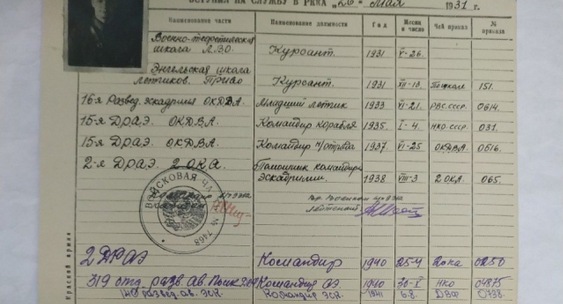 ВСТУПИЛ НА СЛУЖБУ В РККА "26" Мая 1931 г.
Наименование части Наименование должности Год Месяц и число Чей приказ № приказа
Военно-теоретическая
школа Л.ВО. Курсант. 1931 V-26.
Энгельская школа
летчиков. ПриВО Курсант. 1931 VII-13. 151.
16я Развед. эскадрилия ОКДВА. Младший летчик 1933 VI-21. РВС СССР. 0614.
15-я ДРАЭ. ОКДВА. Командир корабля 1935. I-4 НКО СССР. 031.
15я ДРАЭ. ОКДВА. Командир 1937 VI-25 ОКДВА. 0616.
2-я ДРАЭ. 2 ОКА. Помошник командира
эскадрилии. 1938 VIII-3 2 ОКА. 065.
ВОЙСКОВАЯ ЧАСТЬ № 7468
2 ДРАЭ Командир 1940 25-4 0250
319 отд. разв. ав. Командир АЭ 1940 30-X НКО 04875
развед. ав. эск. Командир эск. 1941 6.8. ДВФ 0738.